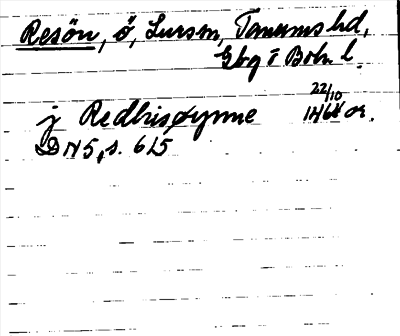 Resön, ö, Lursn, Tanums hd,
Gbg o Boh. l.
j Redhisøynne 22/10 1464 or.
DN 5, s. 615